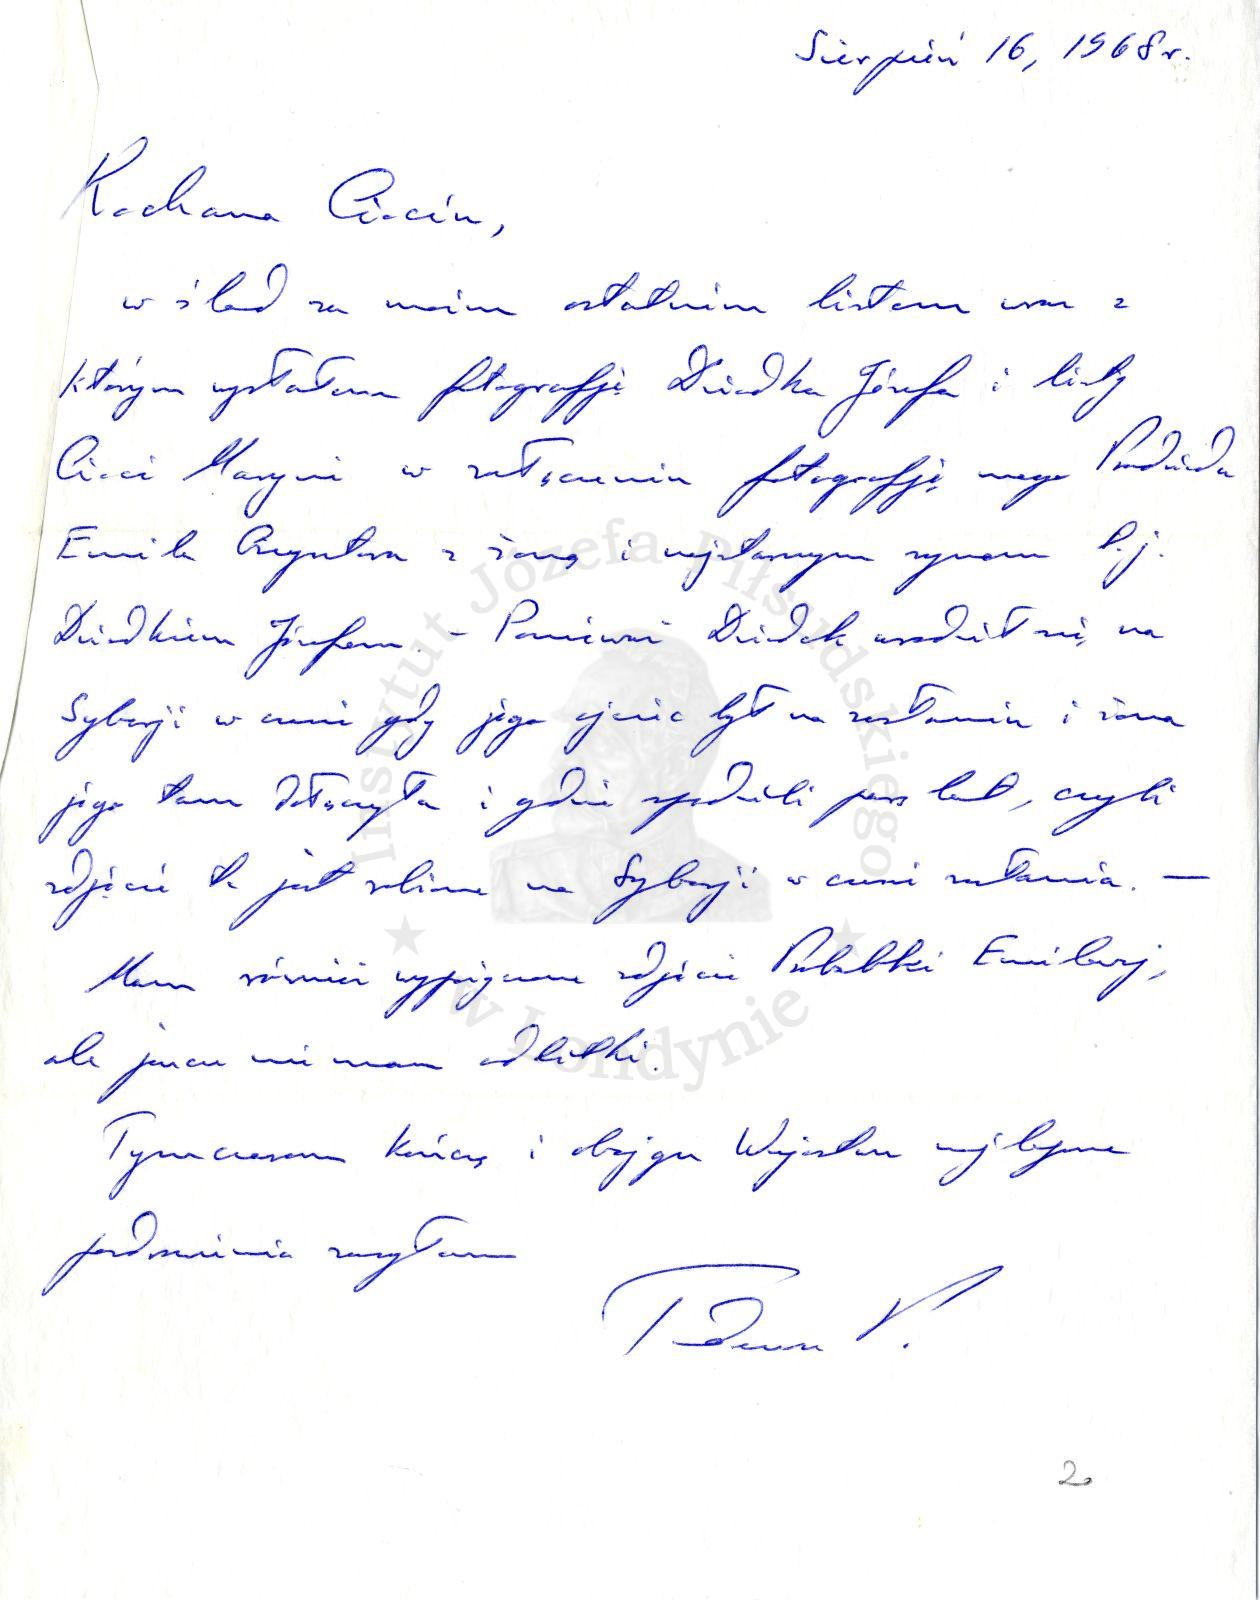 Sierpień 16, 1968 r.
Kochana Ciociu,
w ślad za moim ostatnim listem wraz z
którym wysłałem fotografję Dziadka Józefa i listy
Cioci Maryni w załączeniu fotografję mego Pradziada
Emila z żoną i najstarszym synem t.j.
Dziadkiem Józefem. – Ponieważ Dziadek urodził się na
Syberji w czasie gdy jego ojciec był na zesłaniu i żona
jego tam dołączyła i gdzie spędzili parę lat, czyli
zdjęcie to jest robione na Syberji w czasie zesłania. —
Mam również zdjęcie Prababki Emilowej,
ale jeszcze nie mam odbitki.
Tymczasem kończę i obojgu Wujostwu najlepsze
pozdrowienia zasyłam
V.
2.
Instytut Józefa Piłsudskiego
w Londynie